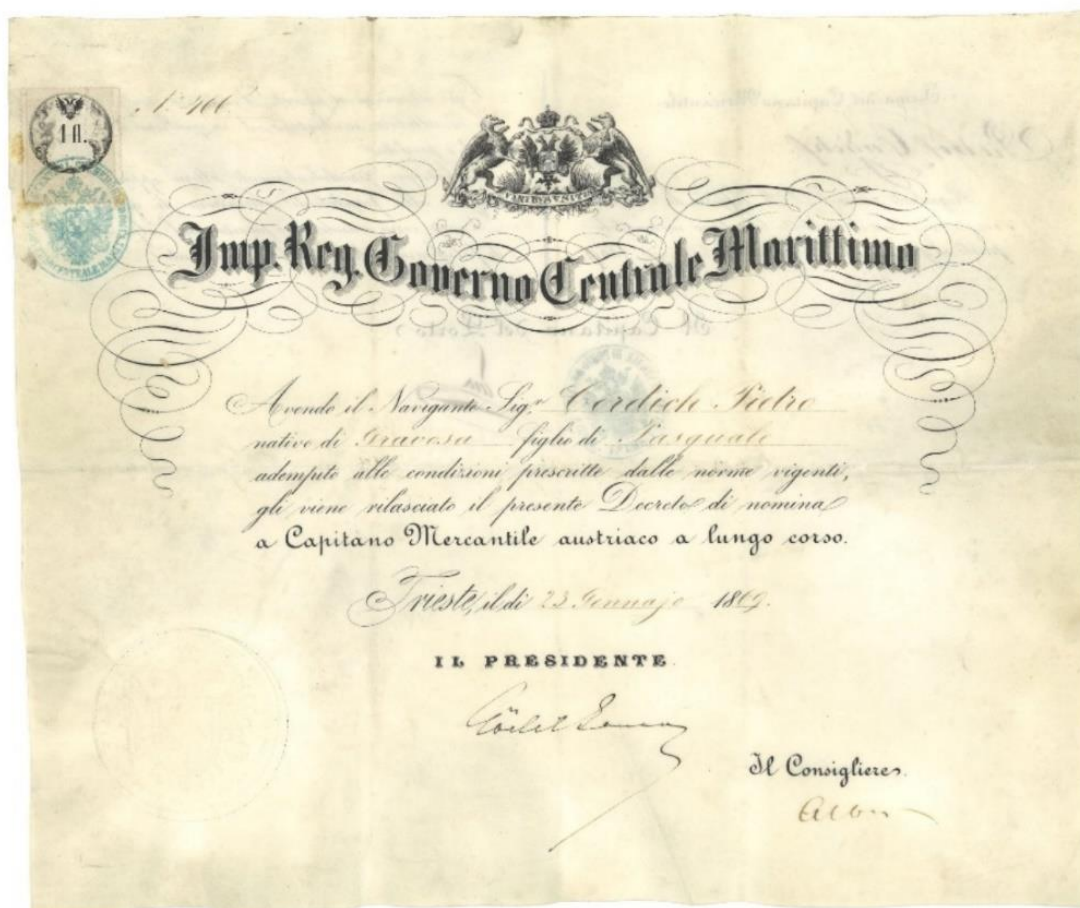 N.° 466
1 fl.
VIRIBUS UNITIS
Imp. Reg. Governo Centrale Marittimo
Avendo il Navigante Sig.r Cerdich Pietro
nativo di Gravosa figlio di Pasquale
adempito alle condizioni prescritte dalle norme vigenti,
gli viene rilasciato il presente Decreto di nomina
a Capitano Mercantile austriaco a lungo corso.
Trieste, il dì 23 Gennajo 1869.
IL PRESIDENTE
Il Consigliere